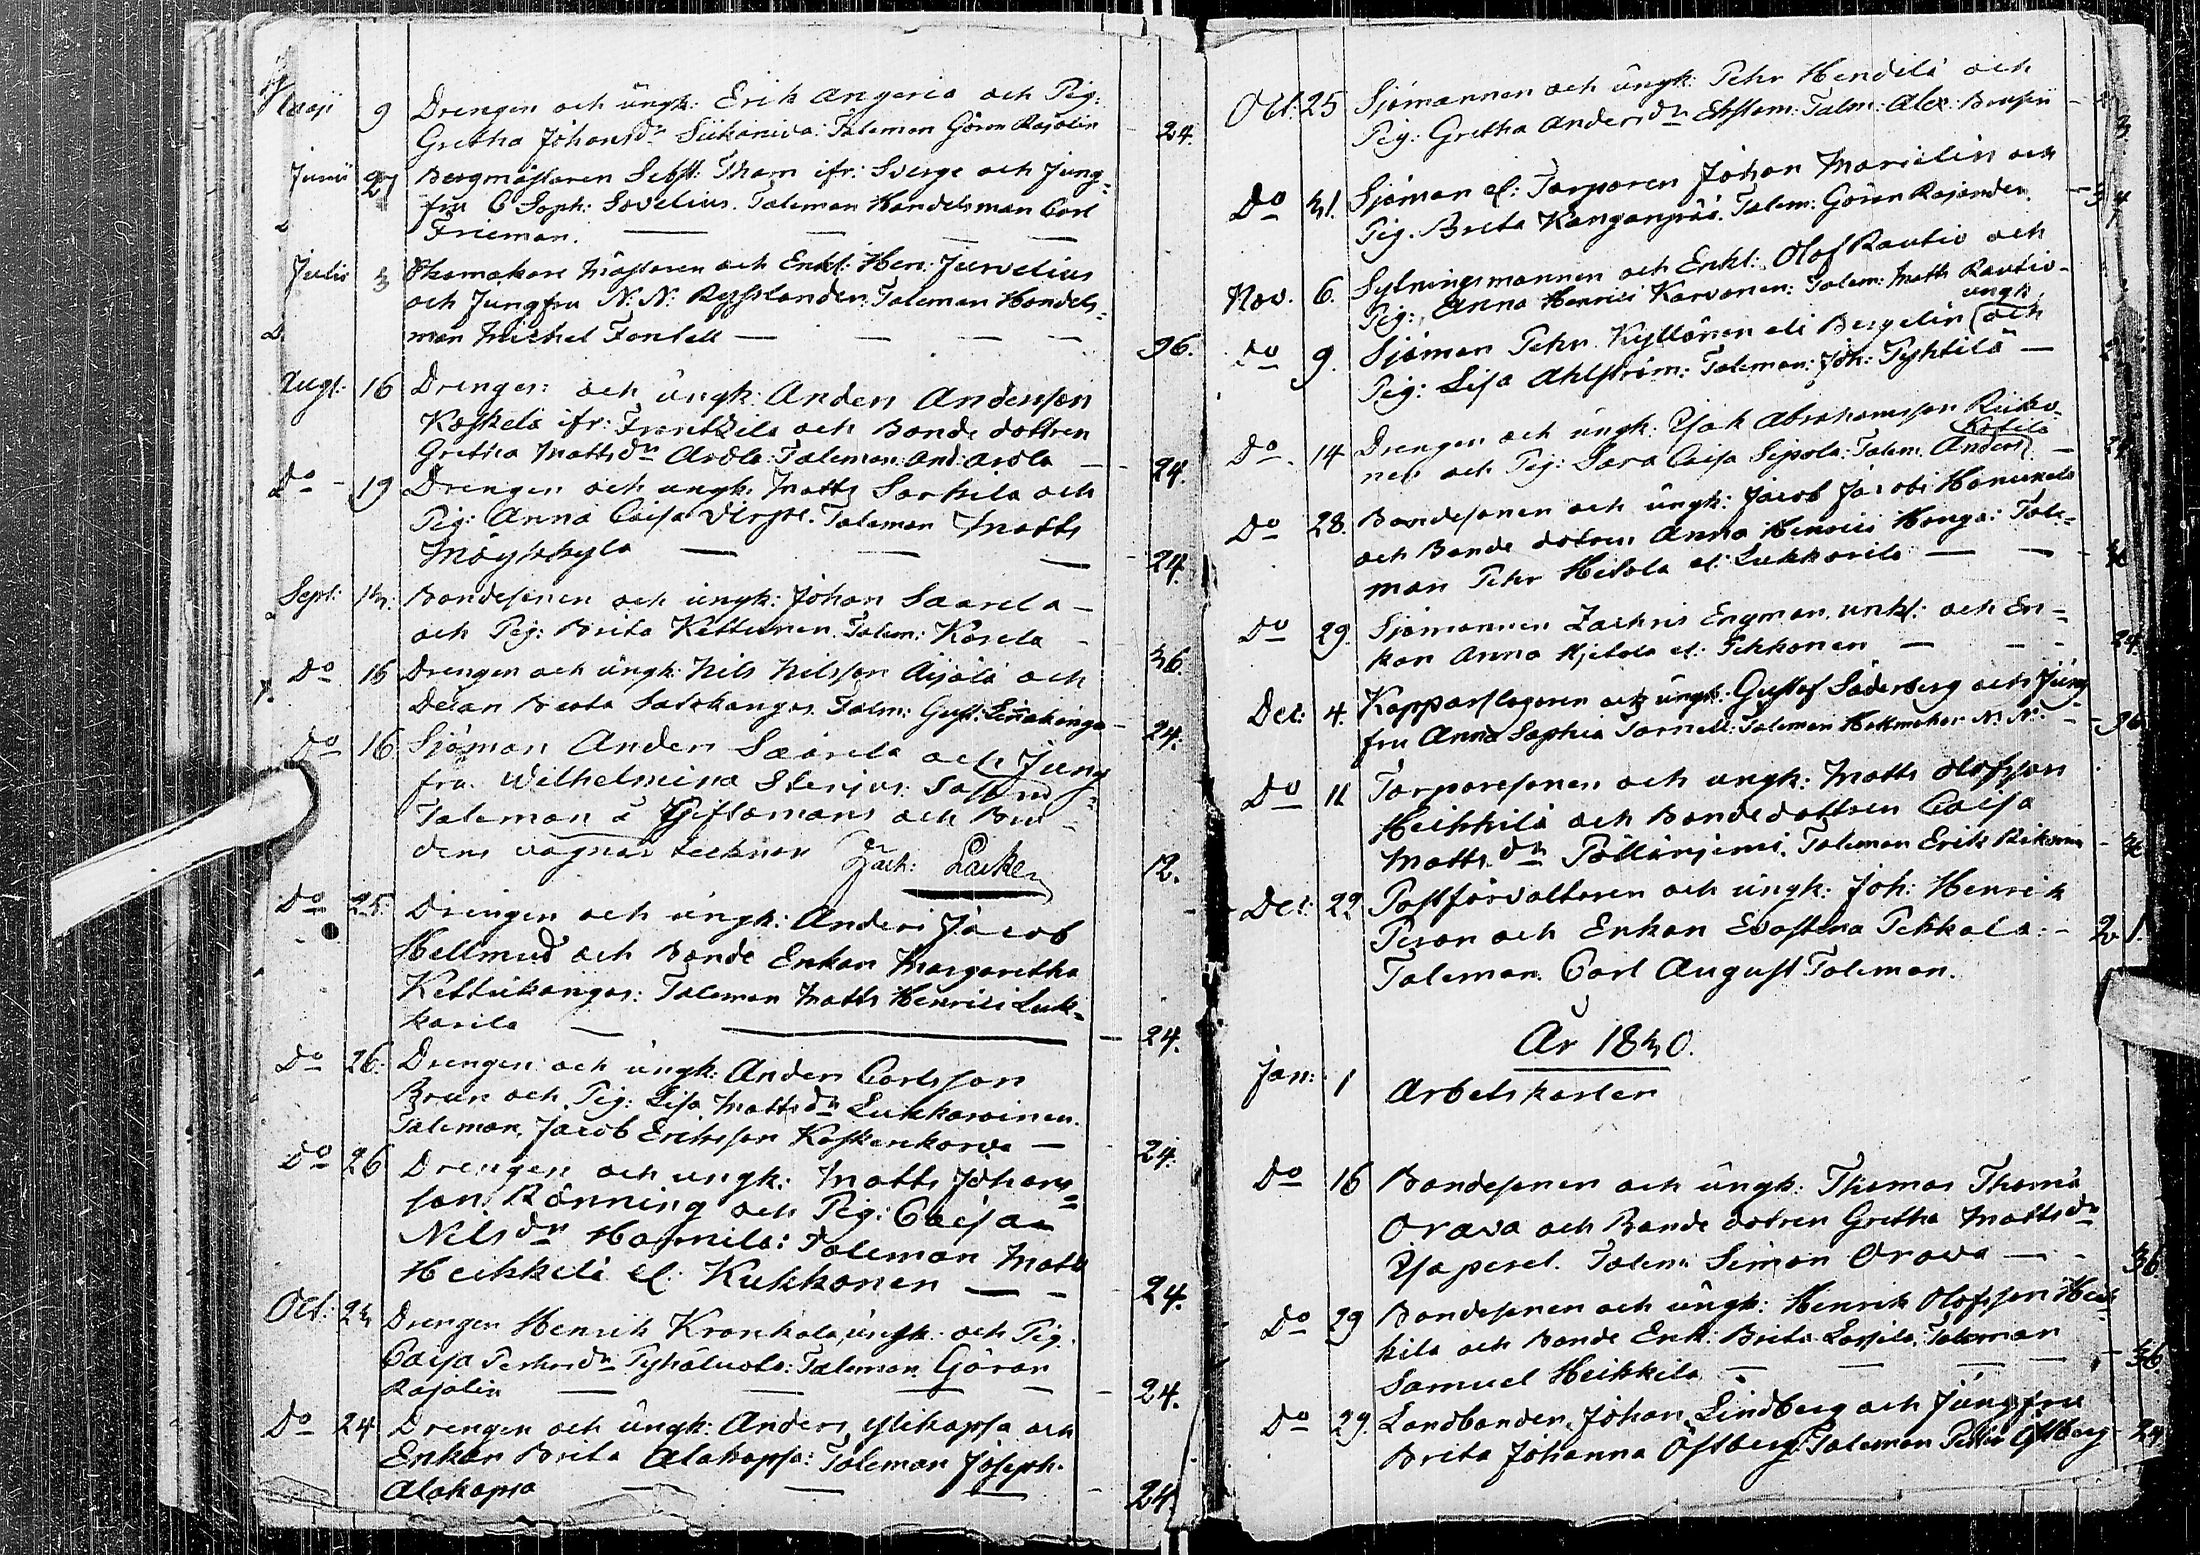 Maji 9 Drengen och ungk: Erik Angeria och Pig:
Gretha Johansdr Siikaniva: Taleman Göran Rajalin - 24.
Junii 27 Bergmästaren Sebst: Tham ifr: Sverge och Jung=
fru C Soph: Sovelius. Taleman Handelsman Carl
Frieman. — — —
Julii 3 Skomakare Mästaren och Enkl: Hen: Jurvelius
och Jungfru N: N: Rysslander. Taleman Handels=
man Michel Fontell — — — — 96.
Augt: 16 Drengen: och ungk: Anders Andersson
Koskela ifr: Frantzila och Bonde dottren
Gretha Mattsdr Arola: Taleman: And: Arola — - 24.
Do - 19 Drengen och ungk: Matts Sarkela och
Pig: Anna Caisa Taleman Matts
Möykkylä — — — - 24.
Sept: 13: Bondesonen och ungk: Johan Saarela —
och Pig: Brita Kettunen. Talem: Karela - 36.
Do 16 Drengen och ungk. Nils Nilsson Äijälä och
Brita Satokangas Talm: Gust: - 24.
Do 16 Sjöman Anders Saarela och Jung
fru Wilhelmina
Taleman a Giftomans och Bru=
dens vägnar tecknar Zach: 12.
Do 25. Drengen och ungk: Anders Jacob
Hellmud och Bonde Enkan Margaretha
Kettukangas: Taleman Matts Henrici Luk=
karila — — - 24.
Do 26: Drengen och ungk: Anders Carlsson
Brun och Pig: Lisa Mattsdr Lukkaroinen.
Taleman, Jacob Ericsson Koskenkorva — 24.
Do 26 Drengen och ungk: Matts Johans=
son Rönning och Pig: Caisa
Nilsdr Harnila: Taleman Matts
Heikkilä el. Kukkonen — - 24.
Oct: 23 Drengen Henrik Krankala, ungk: och Pig.
Caisa Pehrsdr Pyhäluoto: Taleman Göran
Rajalin — — — — - 24.
Do 24. Drengen och ungk: Anders Ylikopsa och
Enkan Brita Alakopsa: Taleman Joseph.
Alakopsa — — — - 24.
Oct: 25 Sjömannen och ungk: Pehr Hendelä och
Pig: Gretha Andersdr Talm: Alex:
Do 31. Sjöman el: Torparen Johan Marielin och
Pig. Brita Kangasperä. Talem: Göran Rajander.
Nov. 6. Sytningsmannen och Enkl: Olof Rautio och
Pig: Anna Henrici Karvonen: Talem: Matts Rautio -
Do 9. Sjöman Pehr Kyllönen eli Bergelin ungk: och
Pig: Lisa Ahlström: Taleman: Joh: Pyhtilä —
Do 14 Drengen och ungk: Isak Abrahamsson
nen och Pig: Sara Caisa Sipola: Talem. Anders Kotila —
Do 28. Bondesonen och ungk: Jacob Jacobi Hanukela
och Bonde dotren Anna Henrici Honga: Tale=
man Pehr Heitola el: Lukkarila — —
Do 29. Sjömannen Zachris Engman, enkl: och En=
kan Anna Hietala el: Pekkonen — - - 24.
Dec: 4. Kopparslagaren och ungk: Gustaf Söderberg och Jung
fru Anna Sophia Tornell: Taleman Hattmakar N: N: - 96.
Do 11 Torparesonen och ungk: Matts Olofsson
Heikkilä och Bondedottren Caisa
Mattsdr Taleman Erik
Dec: 22 Postförvaltaren och ungk: Joh: Henrik
Peron och Enkan Evastina Pekkala: - 2 1.
Taleman Carl August Toleman.
År 1830.
Jan: 1 Arbetskarlen
Do 16 Bondesonen och ungk: Thomas Thomæ
Orava och Bonde dotren Gretha Mattsdr
Talem: Simon Orava — - 36.
Do 29 Bondesonen och ungk: Henrik Olofsson Heik
kilä och Bonde Enk: Brita Lassila: Taleman
Samuel Heikkilä — — — - 36.
Do 29. Landbonden Johan Lindberg och Jungfru
Brita Johanna Östberg: Taleman Petter Östberg - 24